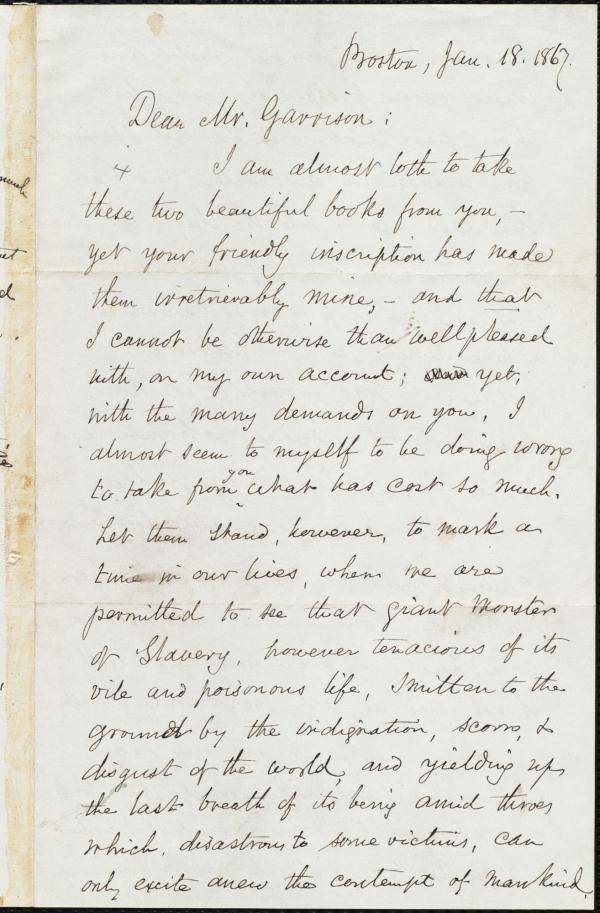 Boston, Jan. 18. 1867.
Dear Mr. Garrison:
I am almost loth to take
these two beautiful books from you, –
yet your friendly inscription has made
them irretrievably mine, – and that
I cannot be otherwise than well pleased
with, on my own account; yet,
with the many demands on you, I
almost seem to myself to be doing wrong
you
to take from what has cost so much.
Let them stand, however, to mark a
time in our lives, when we are
permitted to see that giant Monster
of Slavery, however tenacious of its
vile and poisonous life, smitten to the
ground by the indignation, scorn, &
disgust of the world, and yielding up
the last breath of its being amid throes
which, disastrous to some victims, can
only excite anew the contempt of mankind.